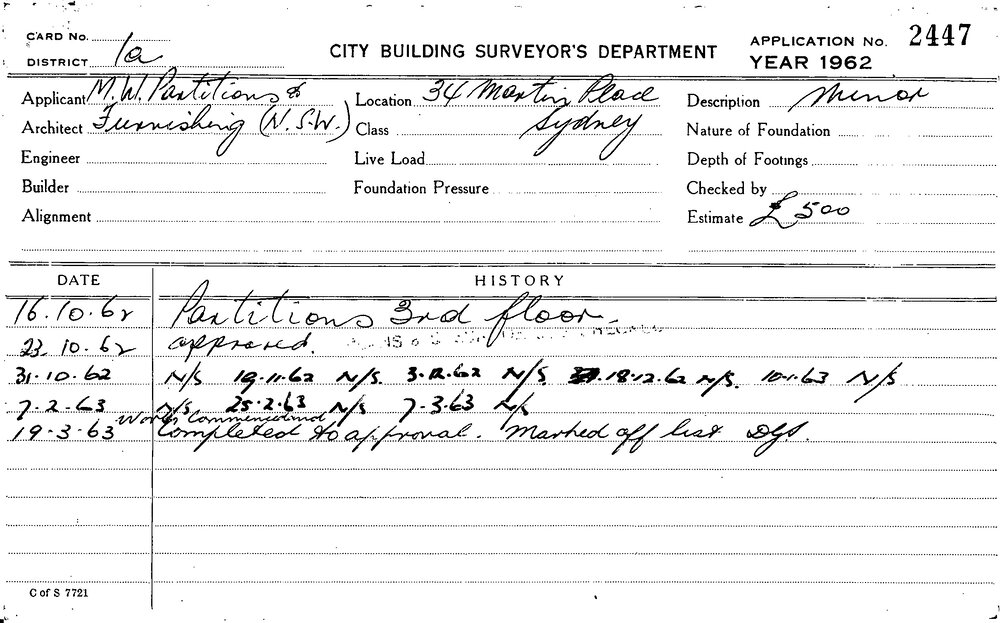 CARD No.
DISTRICT 1a
CITY BUILDING SURVEYOR'S DEPARTMENT
APPLICATION No. 2447
YEAR 1962
Applicant M.W. Partitions &
Architect Furnishing (N.S.W.)
Engineer
Builder
Alignment
Location 34 Martin Place
Class Sydney
Live Load
Foundation Pressure
Description Minor
Nature of Foundation
Depth of Footings
Checked by
Estimate £500
DATE HISTORY
16.10.62 Partitions 3rd floor.
23.10.62 approved.
31.10.62 N/S 19.11.62 N/S. 3.12.62 N/S. 18.12.62 N/S. 10.1.63 N/S
7.2.63 N/S 25.2.63 N/S 7.3.63 N/S
Work Commenced and
19.3.63 Completed to approval. Marked off list
C of S 7721